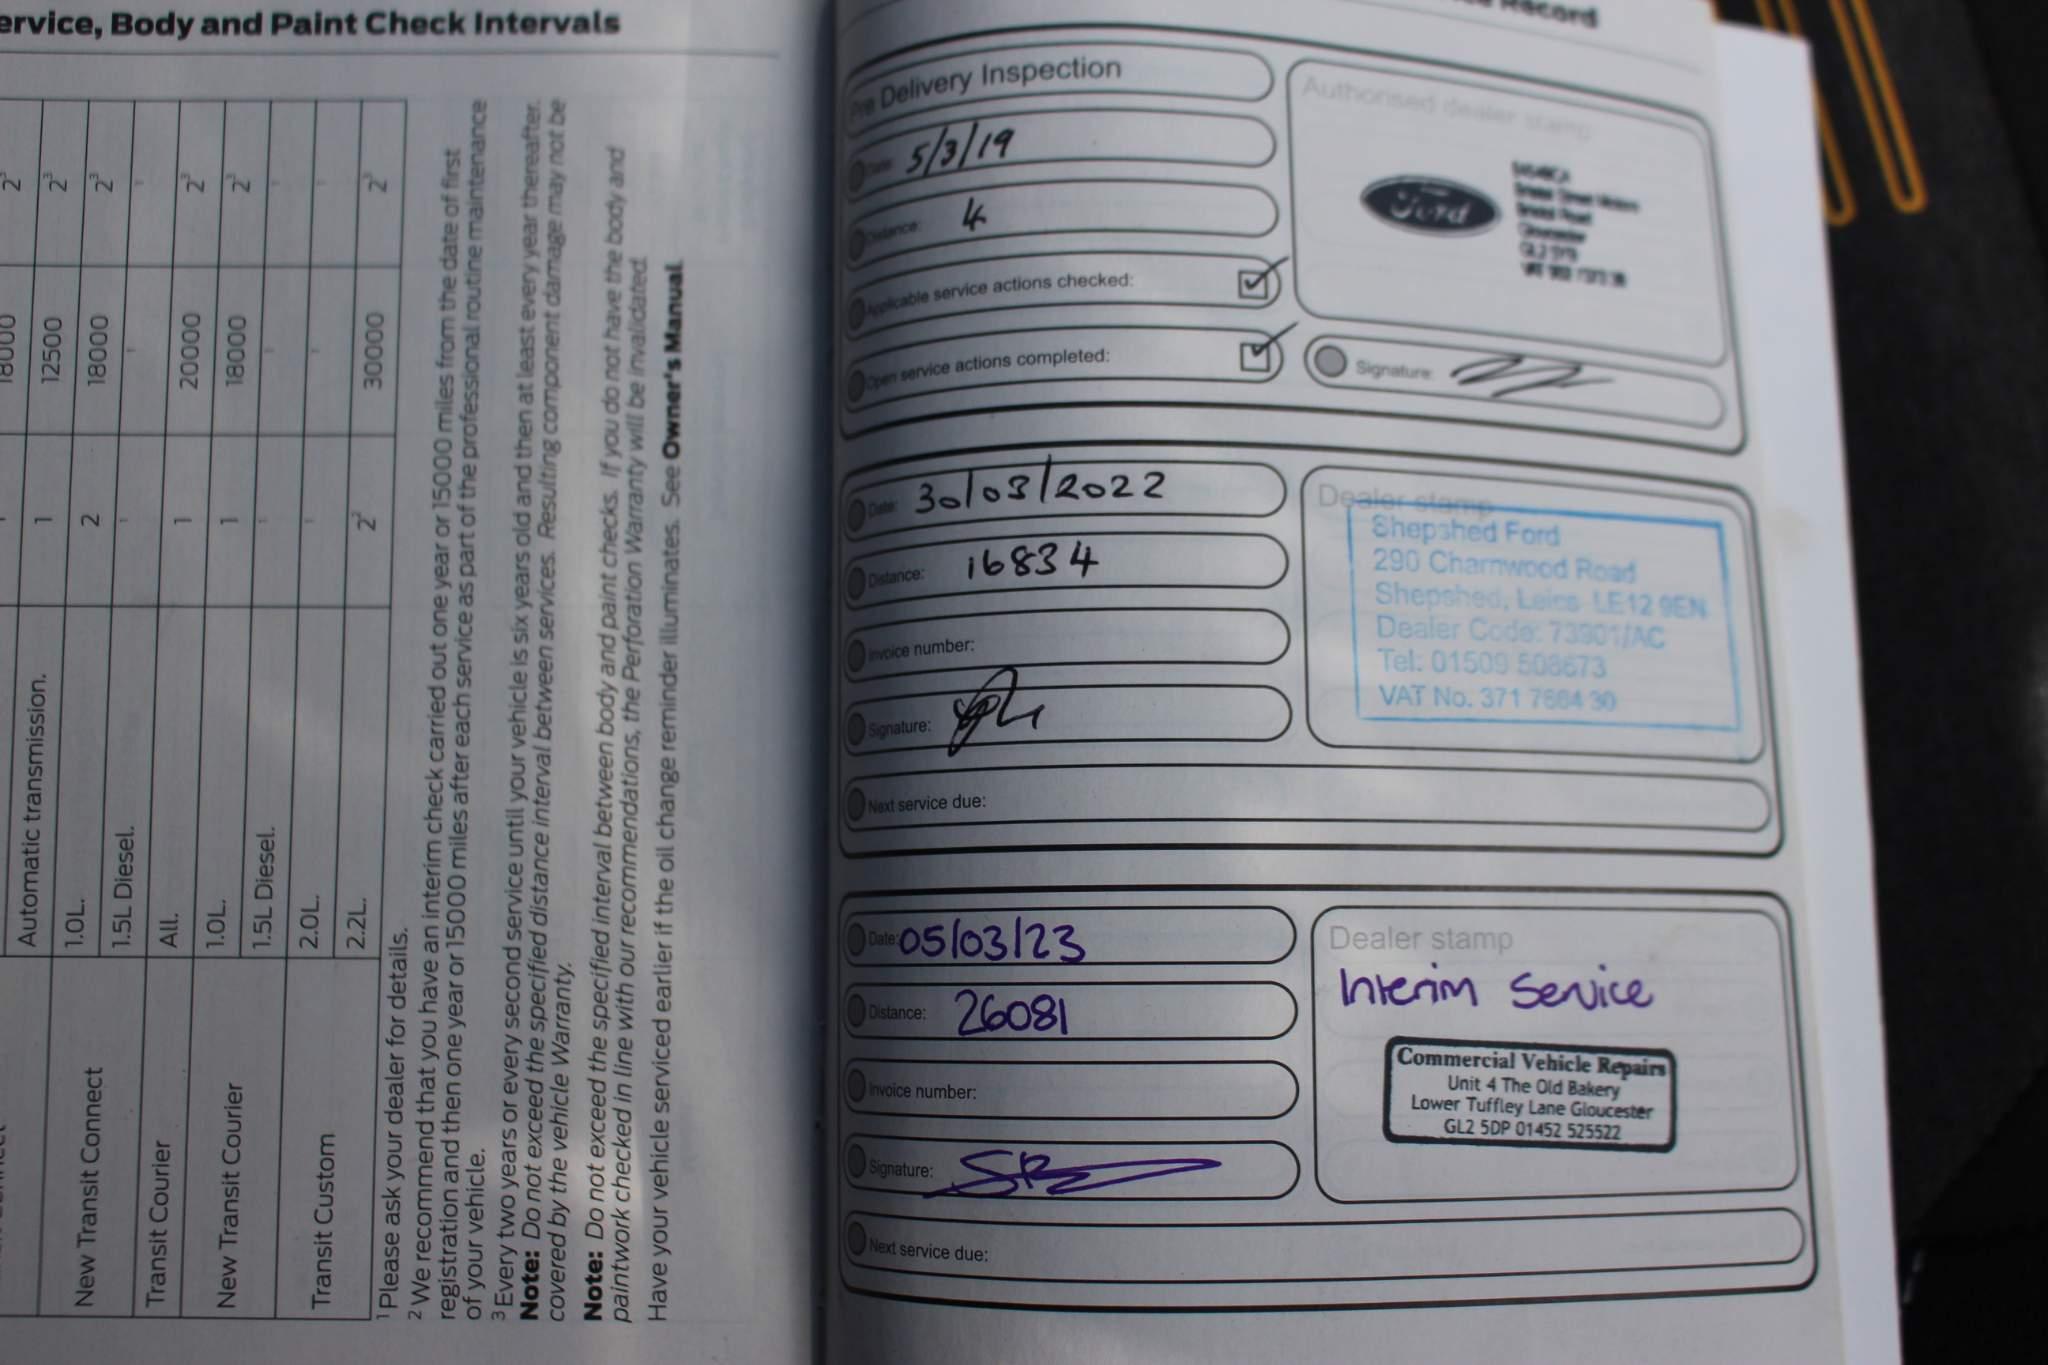 Service, Body and Paint Check Intervals
18000 2³
Automatic transmission. 1 12500 2³
New Transit Connect 1.0L. 2 18000 2³
1.5L Diesel. - - -
Transit Courier All. 1 20000 2³
New Transit Courier 1.0L. 1 18000 2³
1.5L Diesel. - - -
Transit Custom 2.0L. - - -
2.2L. 2² 30000 2³
¹ Please ask your dealer for details.
² We recommend that you have an interim check carried out one year or 15000 miles from the date of first
registration and then one year or 15000 miles after each service as part of the professional routine maintenance
of your vehicle.
³ Every two years or every second service until your vehicle is six years old and then at least every year thereafter.
Note: Do not exceed the specified distance interval between services. Resulting component damage may not be
covered by the vehicle Warranty.
Note: Do not exceed the specified interval between body and paint checks. If you do not have the body and
paintwork checked in line with our recommendations, the Perforation Warranty will be invalidated.
Have your vehicle serviced earlier if the oil change reminder illuminates. See Owner's Manual.
Record
Pre Delivery Inspection
Date: 5/3/19
Distance: 4
Applicable service actions checked:
Open service actions completed:
Authorised dealer stamp
Ford
Bristol Street Motors
Bristol Road
Gloucester
Signature:
Date: 30/03/2022
Distance: 16834
Invoice number:
Signature:
Next service due:
Dealer stamp
Shepshed Ford
290 Charnwood Road
Shepshed, Leics LE12 9EN
Dealer Code: 73901/AC
Tel: 01509 508673
VAT No. 371 7664 30
Date: 05/03/23
Distance: 26081
Invoice number:
Signature:
Next service due:
Dealer stamp
Interim Service
Commercial Vehicle Repairs
Unit 4 The Old Bakery
Lower Tuffley Lane Gloucester
GL2 5DP 01452 525522